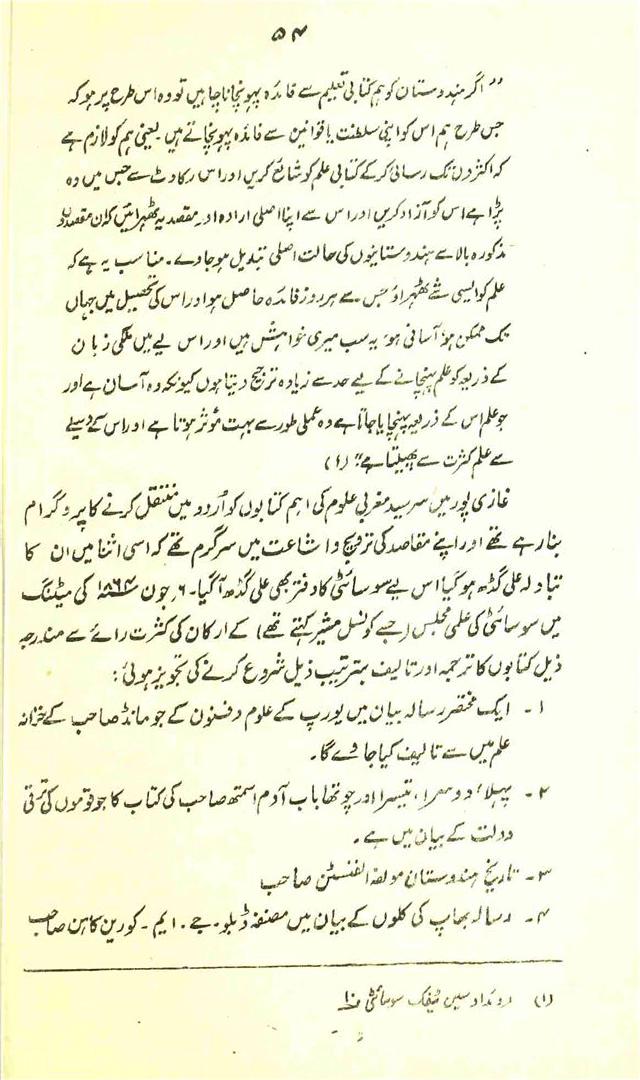 ۵۴
"اگر ہندوستان کو ہم کتابی تعلیم سے فائدہ پہونچانا چاہیں تو وہ اس طرح پر ہو کہ
جس طرح ہم اس کو اپنی سلطنت یا قوانین سے فائدہ پہونچاتے ہیں یعنی ہم کو لازم ہے
کہ اکثروں تک رسائی کر کے کتابی علم کو شائع کریں اور اس رکاوٹ سے جس میں وہ
پڑا ہے اس کو آزاد کریں اور اس سے اپنا اصلی ارادہ اور مقصد یہ ٹھہرائیں کہ ان مقصدوں
مذکورہ بالا سے ہندوستانیوں کی حالت اصلی تبدیل ہو جاوے۔ مناسب یہ ہے کہ
علم کو ایسی شے ٹھہراؤ جس سے ہر روز فائدہ حاصل ہو اور اس کی تحصیل میں جہاں
تک ممکن ہو آسانی ہو، یہ سب میری خواہشیں ہیں اور اس لیے میں ملکی زبان
کے ذریعہ کو علم پہنچانے کے لیے حد سے زیادہ ترجیح دیتا ہوں کیونکہ وہ آسان ہے اور
جو علم اس کے ذریعہ پہنچایا جاتا ہے وہ عملی طور سے بہت مؤثر ہوتا ہے اور اس کے وسیلے
سے علم کثرت سے پھیلتا ہے" (۱)
غازی پور میں سرسید مغربی علوم کی اہم کتابوں کو اُردو میں منتقل کرنے کا پروگرام
بنا رہے تھے اور اپنے مقاصد کی ترویج و اشاعت میں سرگرم تھے کہ اسی اثنا میں ان کا
تبادلہ علی گڈھ ہو گیا اس لیے سوسائٹی کا دفتر بھی علی گڈھ آ گیا۔ ۶ جون ۱۸۶۴ کی میٹنگ
میں سوسائٹی کی علمی مجلس (جسے کونسل مشیر کہتے تھے) کے ارکان کی کثرت رائے سے مندرجہ
ذیل کتابوں کا ترجمہ اور تالیف بترتیب ذیل شروع کرنے کی تجویز ہوئی:
۱۔ ایک مختصر رسالہ بیان میں یورپ کے علوم و فنون کے جو مانڈ صاحب کے خزانہ
علم میں سے تالیف کیا جاوے گا۔
۲۔ پہلا، دوسرا، تیسرا اور چوتھا باب آدم اسمتھ صاحب کی کتاب کا جو قوموں کی ترقی
دولت کے بیان میں ہے۔
۳۔ تاریخ ہندوستان مولفہ الفنسٹن صاحب
۴۔ رسالہ بھاپ کی کلوں کے بیان میں مصنفہ ڈبلو۔ جے۔ ایم۔ صاحب
(۱) روئداد سین ٹیفک سوسائٹی